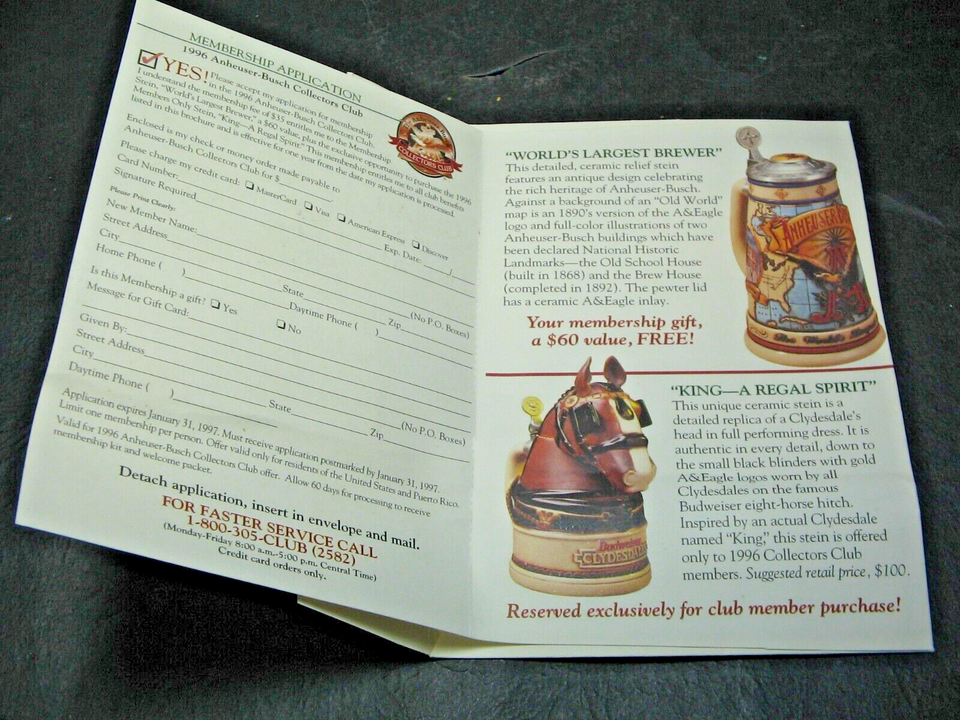 MEMBERSHIP APPLICATION
1996 Anheuser-Busch Collectors Club
YES! Please accept my application for membership
in the 1996 Anheuser-Busch Collectors Club.
I understand the membership fee of $35 entitles me to the Membership
Stein, "World's Largest Brewer," a $60 value, plus the exclusive opportunity to purchase the 1996
Members Only Stein, "King—A Regal Spirit." This membership entitles me to all club benefits
listed in this brochure and is effective for one year from the date my application is processed.
COLLECTORS CLUB
Enclosed is my check or money order made payable to
Anheuser-Busch Collectors Club for $
Please charge my credit card: MasterCard Visa American Express Discover
Card Number: Exp. Date: /
Signature Required
Please Print Clearly:
New Member Name:
Street Address (No P.O. Boxes)
City State Zip
Home Phone ( ) Daytime Phone ( )
Is this Membership a gift? Yes No
Message for Gift Card:
Given By:
Street Address (No P.O. Boxes)
City State Zip
Daytime Phone ( )
Application expires January 31, 1997. Must receive application postmarked by January 31, 1997.
Limit one membership per person. Offer valid only for residents of the United States and Puerto Rico.
Valid for 1996 Anheuser-Busch Collectors Club offer. Allow 60 days for processing to receive
membership kit and welcome packet.
Detach application, insert in envelope and mail.
FOR FASTER SERVICE CALL
1-800-305-CLUB (2582)
(Monday-Friday 8:00 a.m.-5:00 p.m. Central Time)
Credit card orders only.
"WORLD'S LARGEST BREWER"
This detailed, ceramic relief stein
features an antique design celebrating
the rich heritage of Anheuser-Busch.
Against a background of an "Old World"
map is an 1890's version of the A&Eagle
logo and full-color illustrations of two
Anheuser-Busch buildings which have
been declared National Historic
Landmarks—the Old School House
(built in 1868) and the Brew House
(completed in 1892). The pewter lid
has a ceramic A&Eagle inlay.
Your membership gift,
a $60 value, FREE!
ANHEUSER
"KING—A REGAL SPIRIT"
This unique ceramic stein is a
detailed replica of a Clydesdale's
head in full performing dress. It is
authentic in every detail, down to
the small black blinders with gold
A&Eagle logos worn by all
Clydesdales on the famous
Budweiser eight-horse hitch.
Inspired by an actual Clydesdale
named "King," this stein is offered
only to 1996 Collectors Club
members. Suggested retail price, $100.
Budweiser
CLYDESDALE
Reserved exclusively for club member purchase!